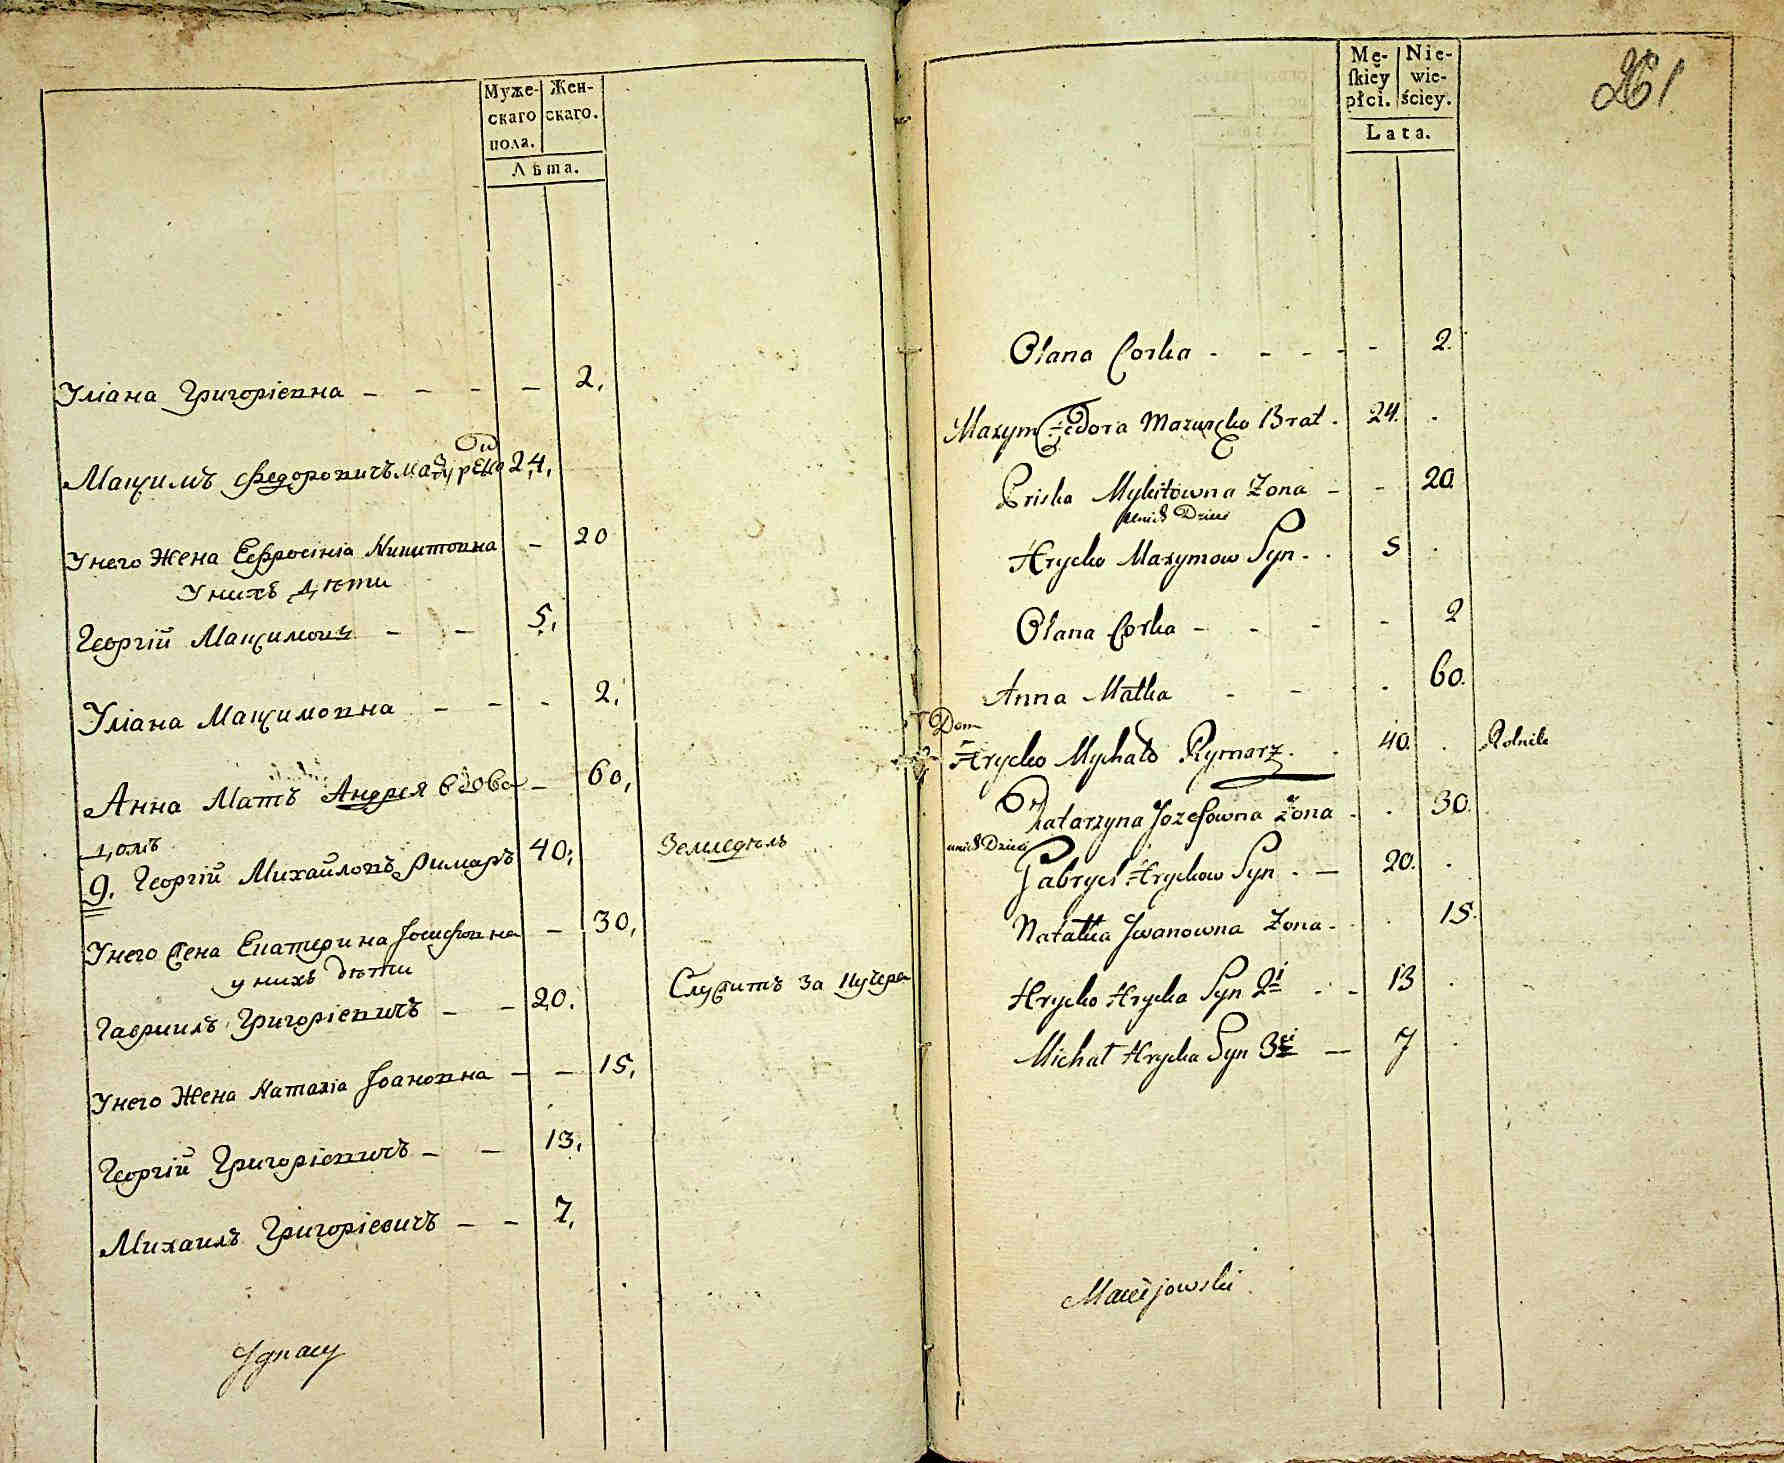 Муже-
скаго
пола.
Жен-
скаго.
Лѣта.
Уліана Григоріевна – – – – 2,
Максимъ Федоровичъ Мазуренко 24,
У него Жена Евфросинія Никитовна – 20
У нихъ Дѣти
Георгій Максимовъ – – 5,
Уліана Максимовна – – – 2,
Анна Мать Андрея вдова – 60,
домъ
9. Георгій Михайловъ Римаръ 40, Земледѣль
У него Жена Екатерина Іосифовна – 30,
у нихъ дѣти
Гавриилъ Григоріевичъ – – 20. Служитъ за кучера
У него Жена Наталія Іоановна – – 15,
Георгій Григоріевичъ – – 13,
Михаилъ Григоріевичъ – – 7,
Ignacy
261
Mę-
ſkiey
płci.
Nie-
wie-
ściey.
Lata.
Olana Corka - - - - - 2.
Maxym Fedora Mazurcko Brat . 24. .
Priska Mykitowna Żona - - 20
unich Dzieci
Hrycko Maxymow Syn - . 5 .
Olana Corka - - - - 2
Anna Matka - - . 60.
Dom
Hrycko Mychało Rymarz . . 40. . Rolnik
Katarzyna Jozefowna Żona . . 30.
unich Dzieci
Gabryel Hryckow Syn . — 20. .
Natalka Jwanowna Żona - . 15.
Hrycko Hrycka Syn 2i . - 13 .
Michał Hrycka Syn 3ci — 7 .
Maciejowski